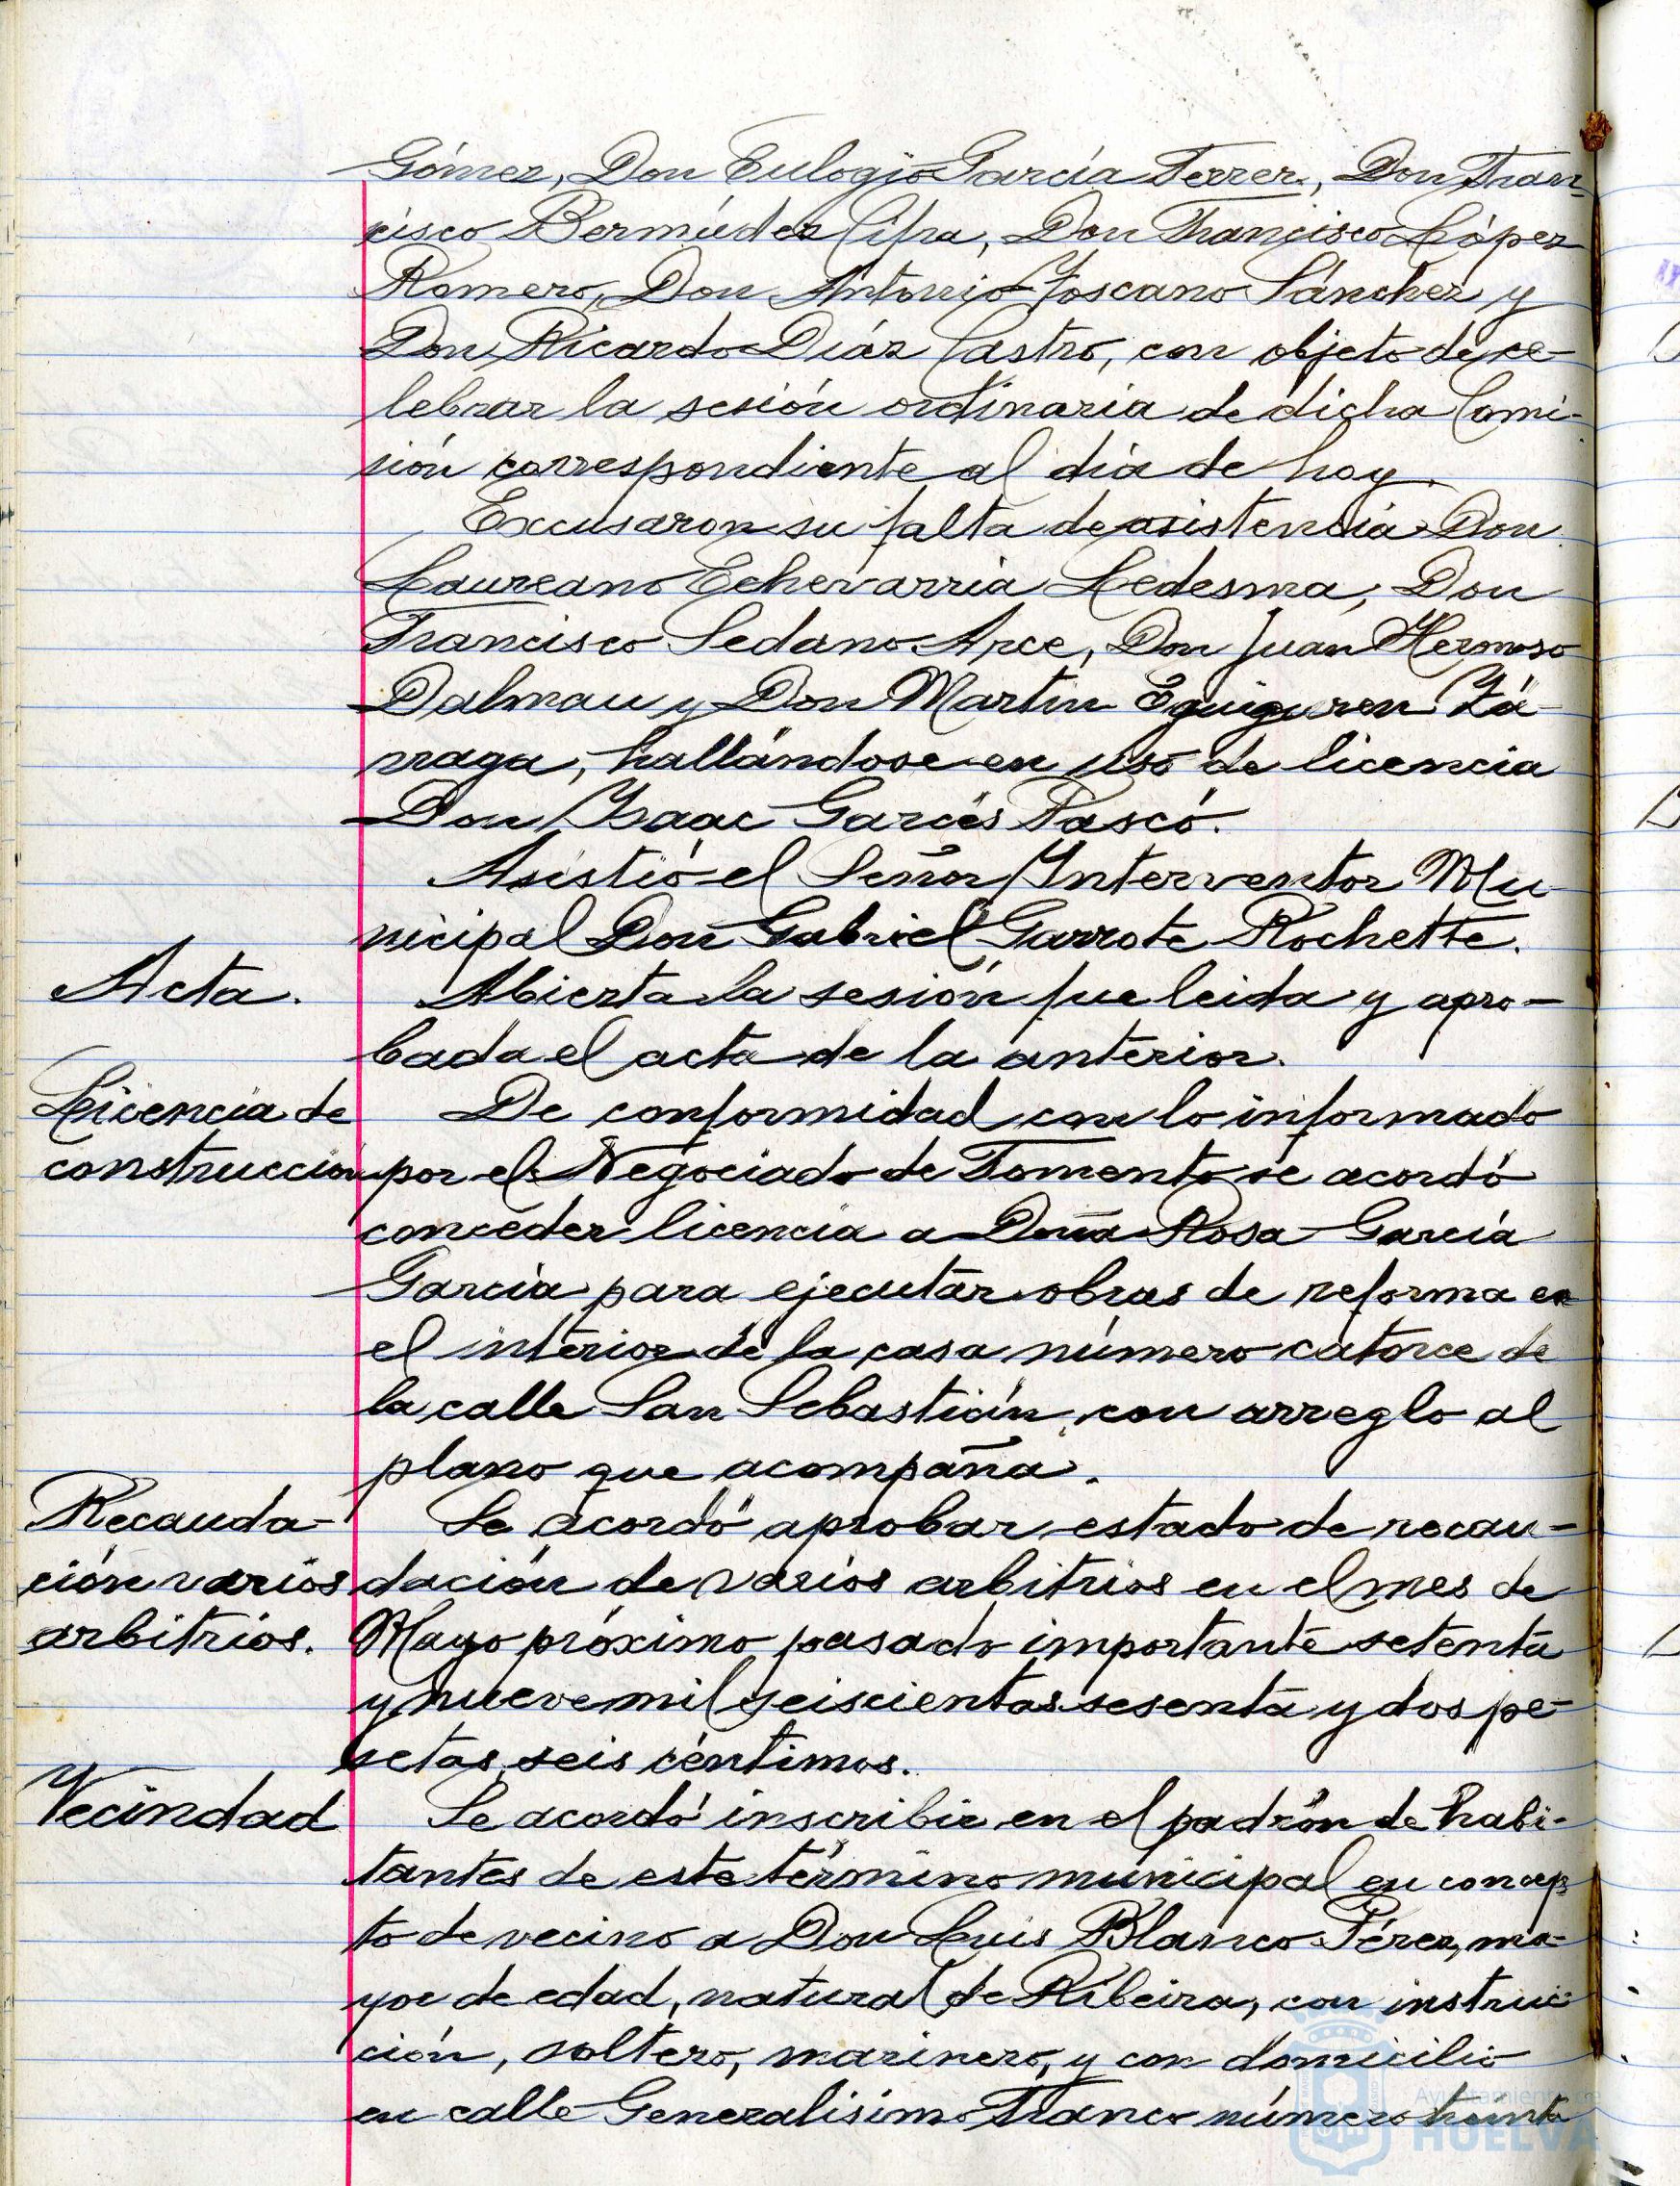 Gómez, Don Eulogio García Ferrer, Don Fran-
cisco Bermúdez Cifra, Don Francisco López
Romero, Don Antonio Toscano Sánchez y
Don Ricardo Díaz Castro, con objeto de ce-
lebrar la sesión ordinaria de dicha Comi-
sión correspondiente al día de hoy.
Excusaron su falta de asistencia Don
Laureano Echevarria Ledesma, Don
Francisco Sedano Arce, Don Juan Hermoso
Dalmau y Don Martin Eguiguren Zá-
rraga, hallándose en uso de licencia
Don Isaac Garcés Pascó.
Asistió el Señor Interventor Mu-
nicipal Don Gabriel Garrote Rochette.
Acta.
Abierta la sesión fue leida y apro-
bada el acta de la anterior.
Licencia de
construccion
De conformidad con lo informado
por el Negociado de Fomento se acordó
conceder licencia a Doña Rosa García
García para ejecutar obras de reforma en
el interior de la casa número catorce de
la calle San Sebastián, con arreglo al
plano que acompaña.
Recauda-
ción varios
arbitrios.
Se acordó aprobar estado de recau-
dación de varios arbitrios en el mes de
Mayo próximo pasado importante setenta
y nueve mil seiscientas sesenta y dos pe-
setas, seis céntimos.
Vecindad
Se acordó inscribir en el padrón de habi-
tantes de este término municipal en concep
to de vecino a Don Luis Blanco Pérez, ma-
yor de edad, natural de Ribeira, con instruc-
ción, soltero, marinero, y con domicilio
en calle Generalisimo Franco número treinta
Ayuntamiento de
HUELVA